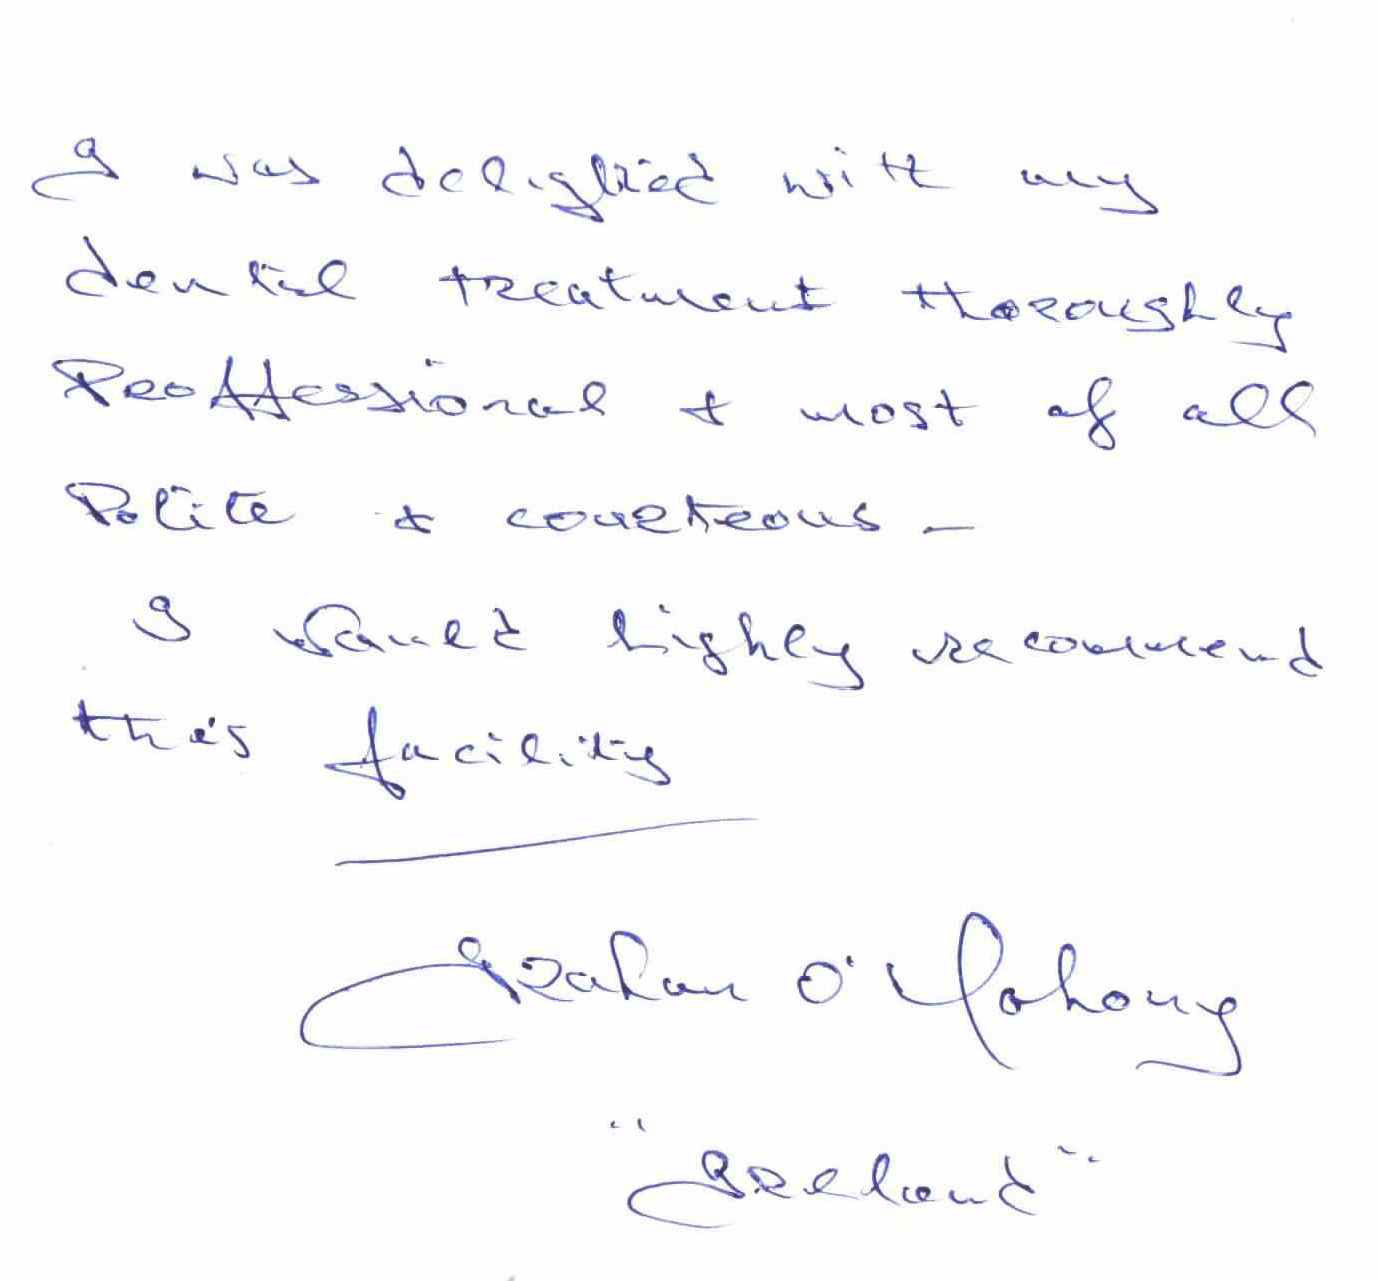 I was delighted with my
dental treatment thoroughly
Proffessional & most of all
Polite & courteous -
I would highly recommend
this facility
Graham O'Mahony
"Ireland"